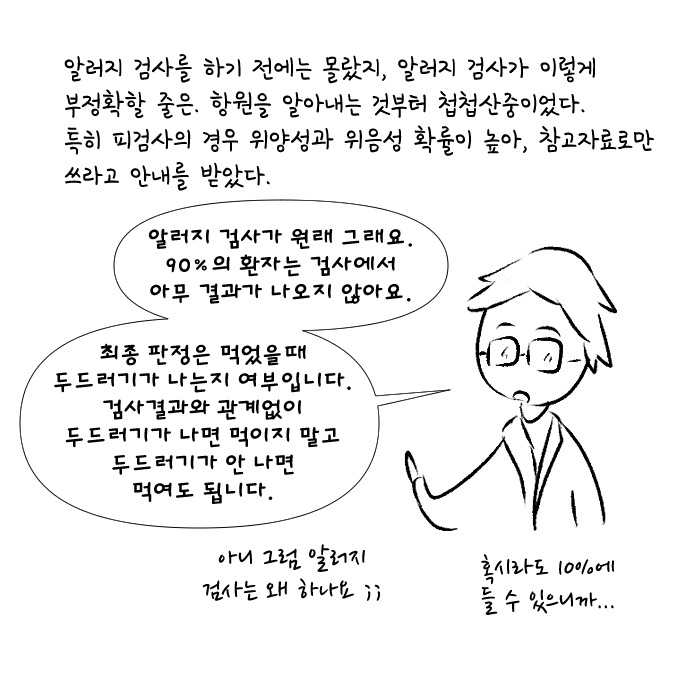 알러지 검사를 하기 전에는 몰랐지, 알러지 검사가 이렇게
부정확할 줄은. 항원을 알아내는 것부터 첩첩산중이었다.
특히 피검사의 경우 위양성과 위음성 확률이 높아, 참고자료로만
쓰라고 안내를 받았다.
알러지 검사가 원래 그래요.
90%의 환자는 검사에서
아무 결과가 나오지 않아요.
최종 판정은 먹었을때
두드러기가 나는지 여부입니다.
검사결과와 관계없이
두드러기가 나면 먹이지 말고
두드러기가 안 나면
먹여도 됩니다.
아니 그럼 알러지
검사는 왜 하나요 ;;
혹시라도 10%에
들 수 있으니까...